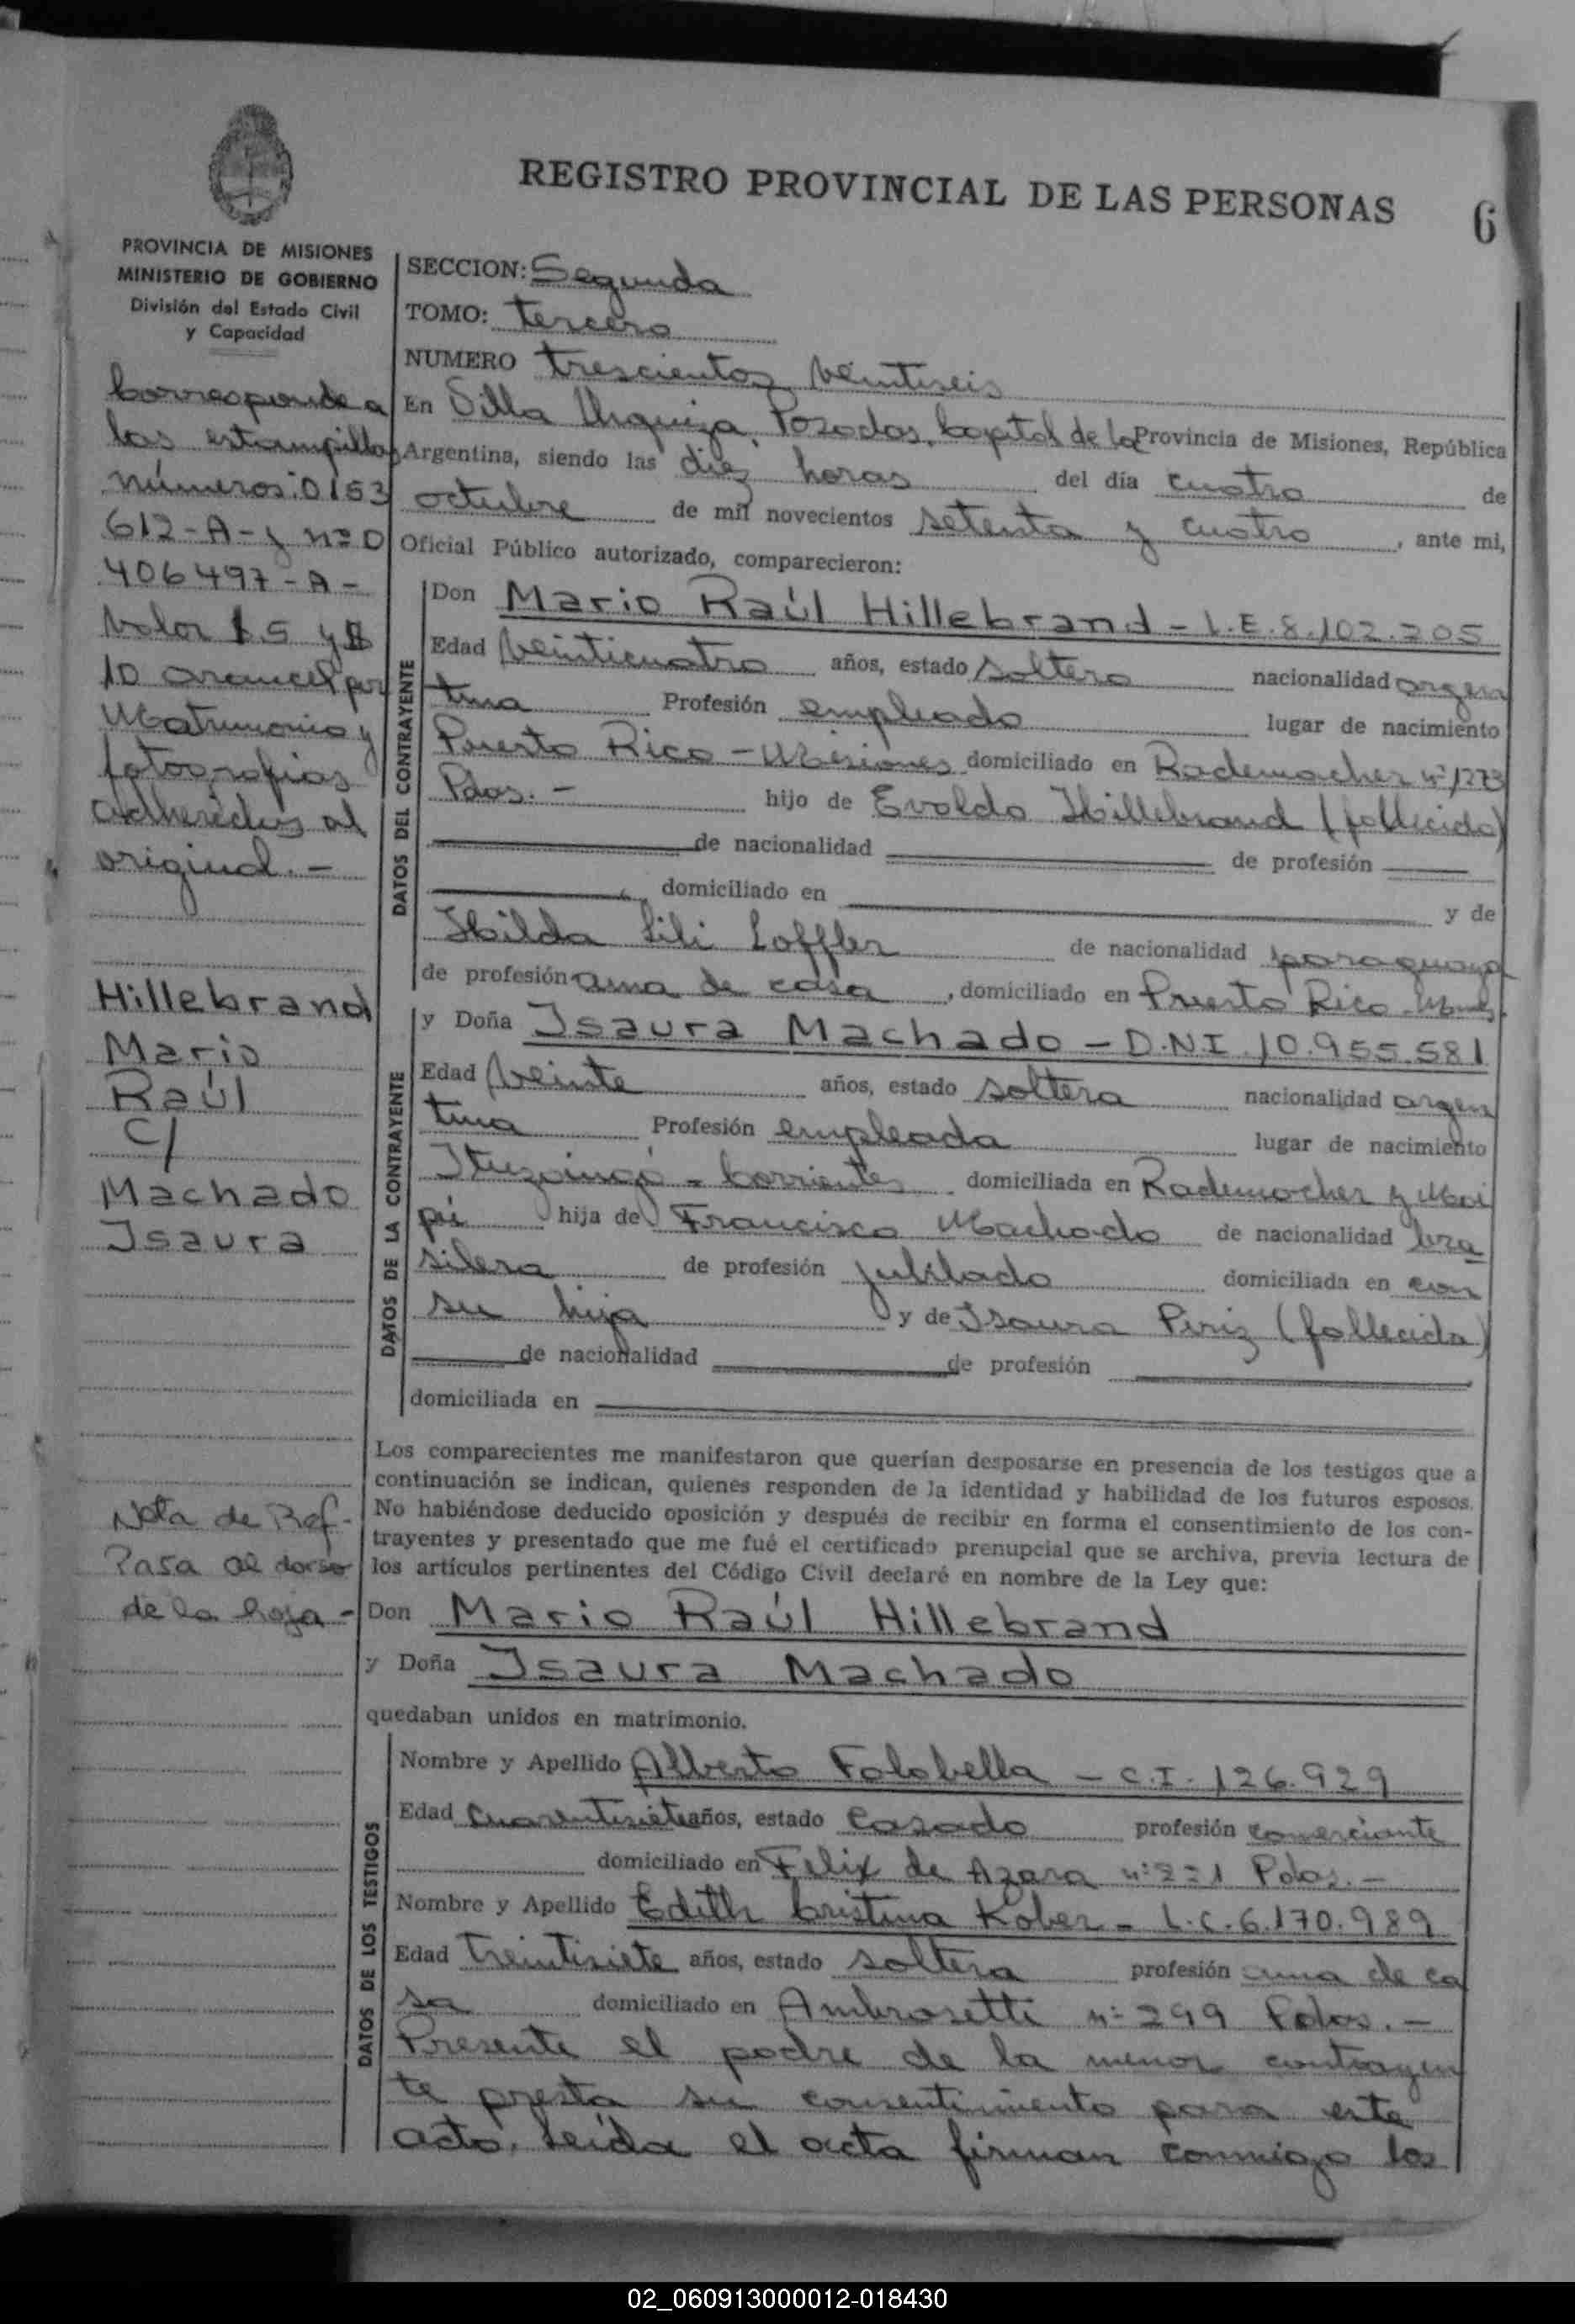 REGISTRO PROVINCIAL DE LAS PERSONAS 6
PROVINCIA DE MISIONES
MINISTERIO DE GOBIERNO
División del Estado Civil
y Capacidad
Corresponde a
las estampillas
números 0153
612-A- y nº 0
406497-A-
Valor $ 5 y $
10 arancel por
Matrimonio y
fotografias
adheridas al
original.-
Hillebrand
Mario
Raúl
c/
Machado
Isaura
Nota de Ref-
Pasa al dorso
de la hoja-
SECCION: Segunda
TOMO: tercero
NUMERO trescientos veintiseis
En Villa Urquiza, Posadas, Capital de la Provincia de Misiones, República
Argentina, siendo las diez horas del día cuatro de
octubre de mil novecientos setenta y cuatro, ante mi,
Oficial Público autorizado, comparecieron:
DATOS DEL CONTRAYENTE
Don Mario Raúl Hillebrand - L.E.8.102.205
Edad veinticuatro años, estado soltero nacionalidad argen
tina Profesión empleado lugar de nacimiento
Puerto Rico - Misiones domiciliado en Rademacher nº 1273
Pdas.- hijo de Evaldo Hillebrand (fallecido)
de nacionalidad de profesión
domiciliado en y de
Hilda Lili Loffler de nacionalidad paraguaya
de profesión ama de casa, domiciliado en Puerto Rico - Mnes.
DATOS DE LA CONTRAYENTE
y Doña Isaura Machado - D.N.I. 10.955.581
Edad veinte años, estado soltera nacionalidad argen
tina Profesión empleada lugar de nacimiento
Ituzaingó - Corrientes domiciliada en Rademacher y Mai
pú hija de Francisco Machado de nacionalidad bra
silera de profesión jubilado domiciliada en con
su hija y de Isaura Piriz (fallecida)
de nacionalidad de profesión
domiciliada en
Los comparecientes me manifestaron que querían desposarse en presencia de los testigos que a
continuación se indican, quienes responden de la identidad y habilidad de los futuros esposos.
No habiéndose deducido oposición y después de recibir en forma el consentimiento de los con-
trayentes y presentado que me fué el certificado prenupcial que se archiva, previa lectura de
los artículos pertinentes del Código Civil declaré en nombre de la Ley que:
Don Mario Raúl Hillebrand
y Doña Isaura Machado
quedaban unidos en matrimonio.
DATOS DE LOS TESTIGOS
Nombre y Apellido Alberto Falabella - C.I. 126.929
Edad cuarentisiete años, estado casado profesión comerciante
domiciliado en Felix de Azara nº 221 Pdas.-
Nombre y Apellido Edith Cristina Kober - L.C. 6.170.989
Edad treintisiete años, estado soltera profesión ama de ca
sa domiciliado en Ambrosetti nº 299 Pdas.-
Presente el padre de la menor contrayen
te presta su consentimiento para este
acto. Leída el acta firman conmigo los
02_060913000012-018430